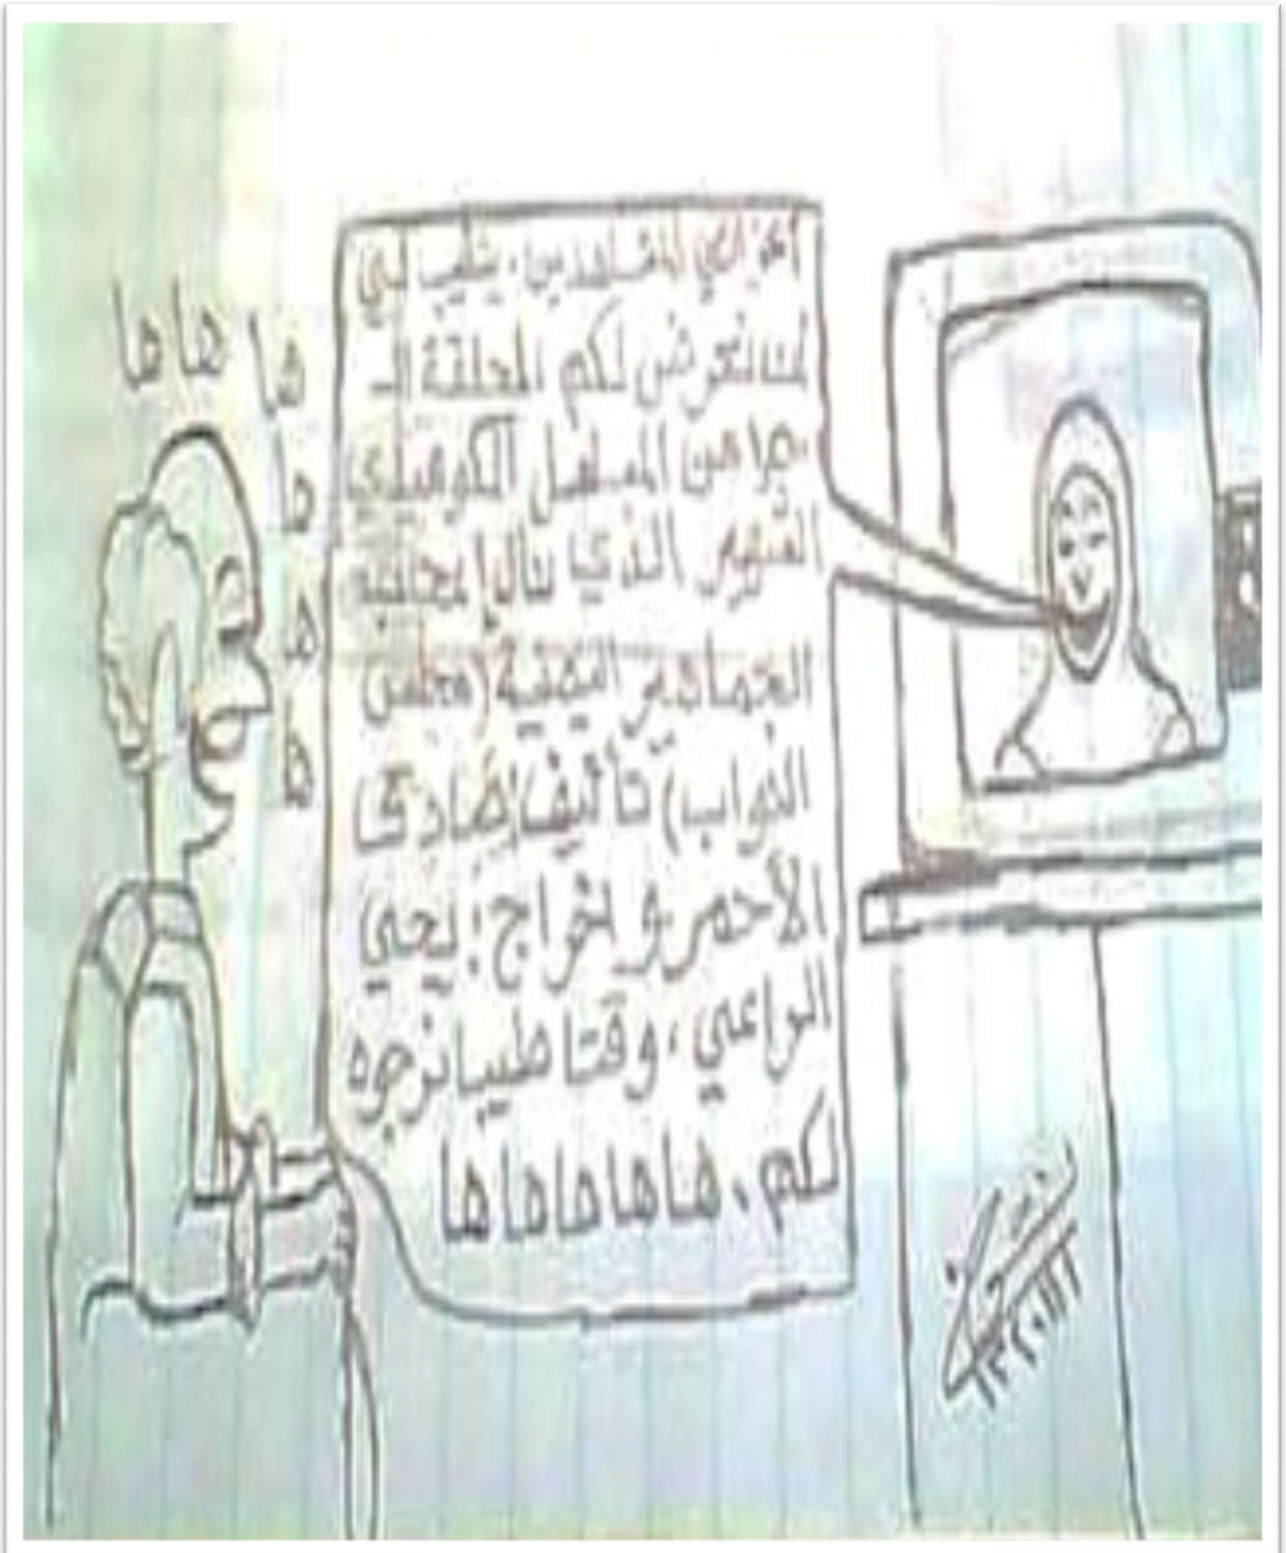 أعزائي المشاهدين، يطيب لي
أن نعرض لكم الحلقة الـ
من المسلسل الكوميدي
الشهير الذي نال إعجاب
الجماهير اليمنية (مجلس
النواب) تأليف: صادق
الأحمر وإخراج: يحي
الراعي، وقتا طيبا نرجوه
لكم، هاهاهاهاها
ها ها ها
ها
ها
ها